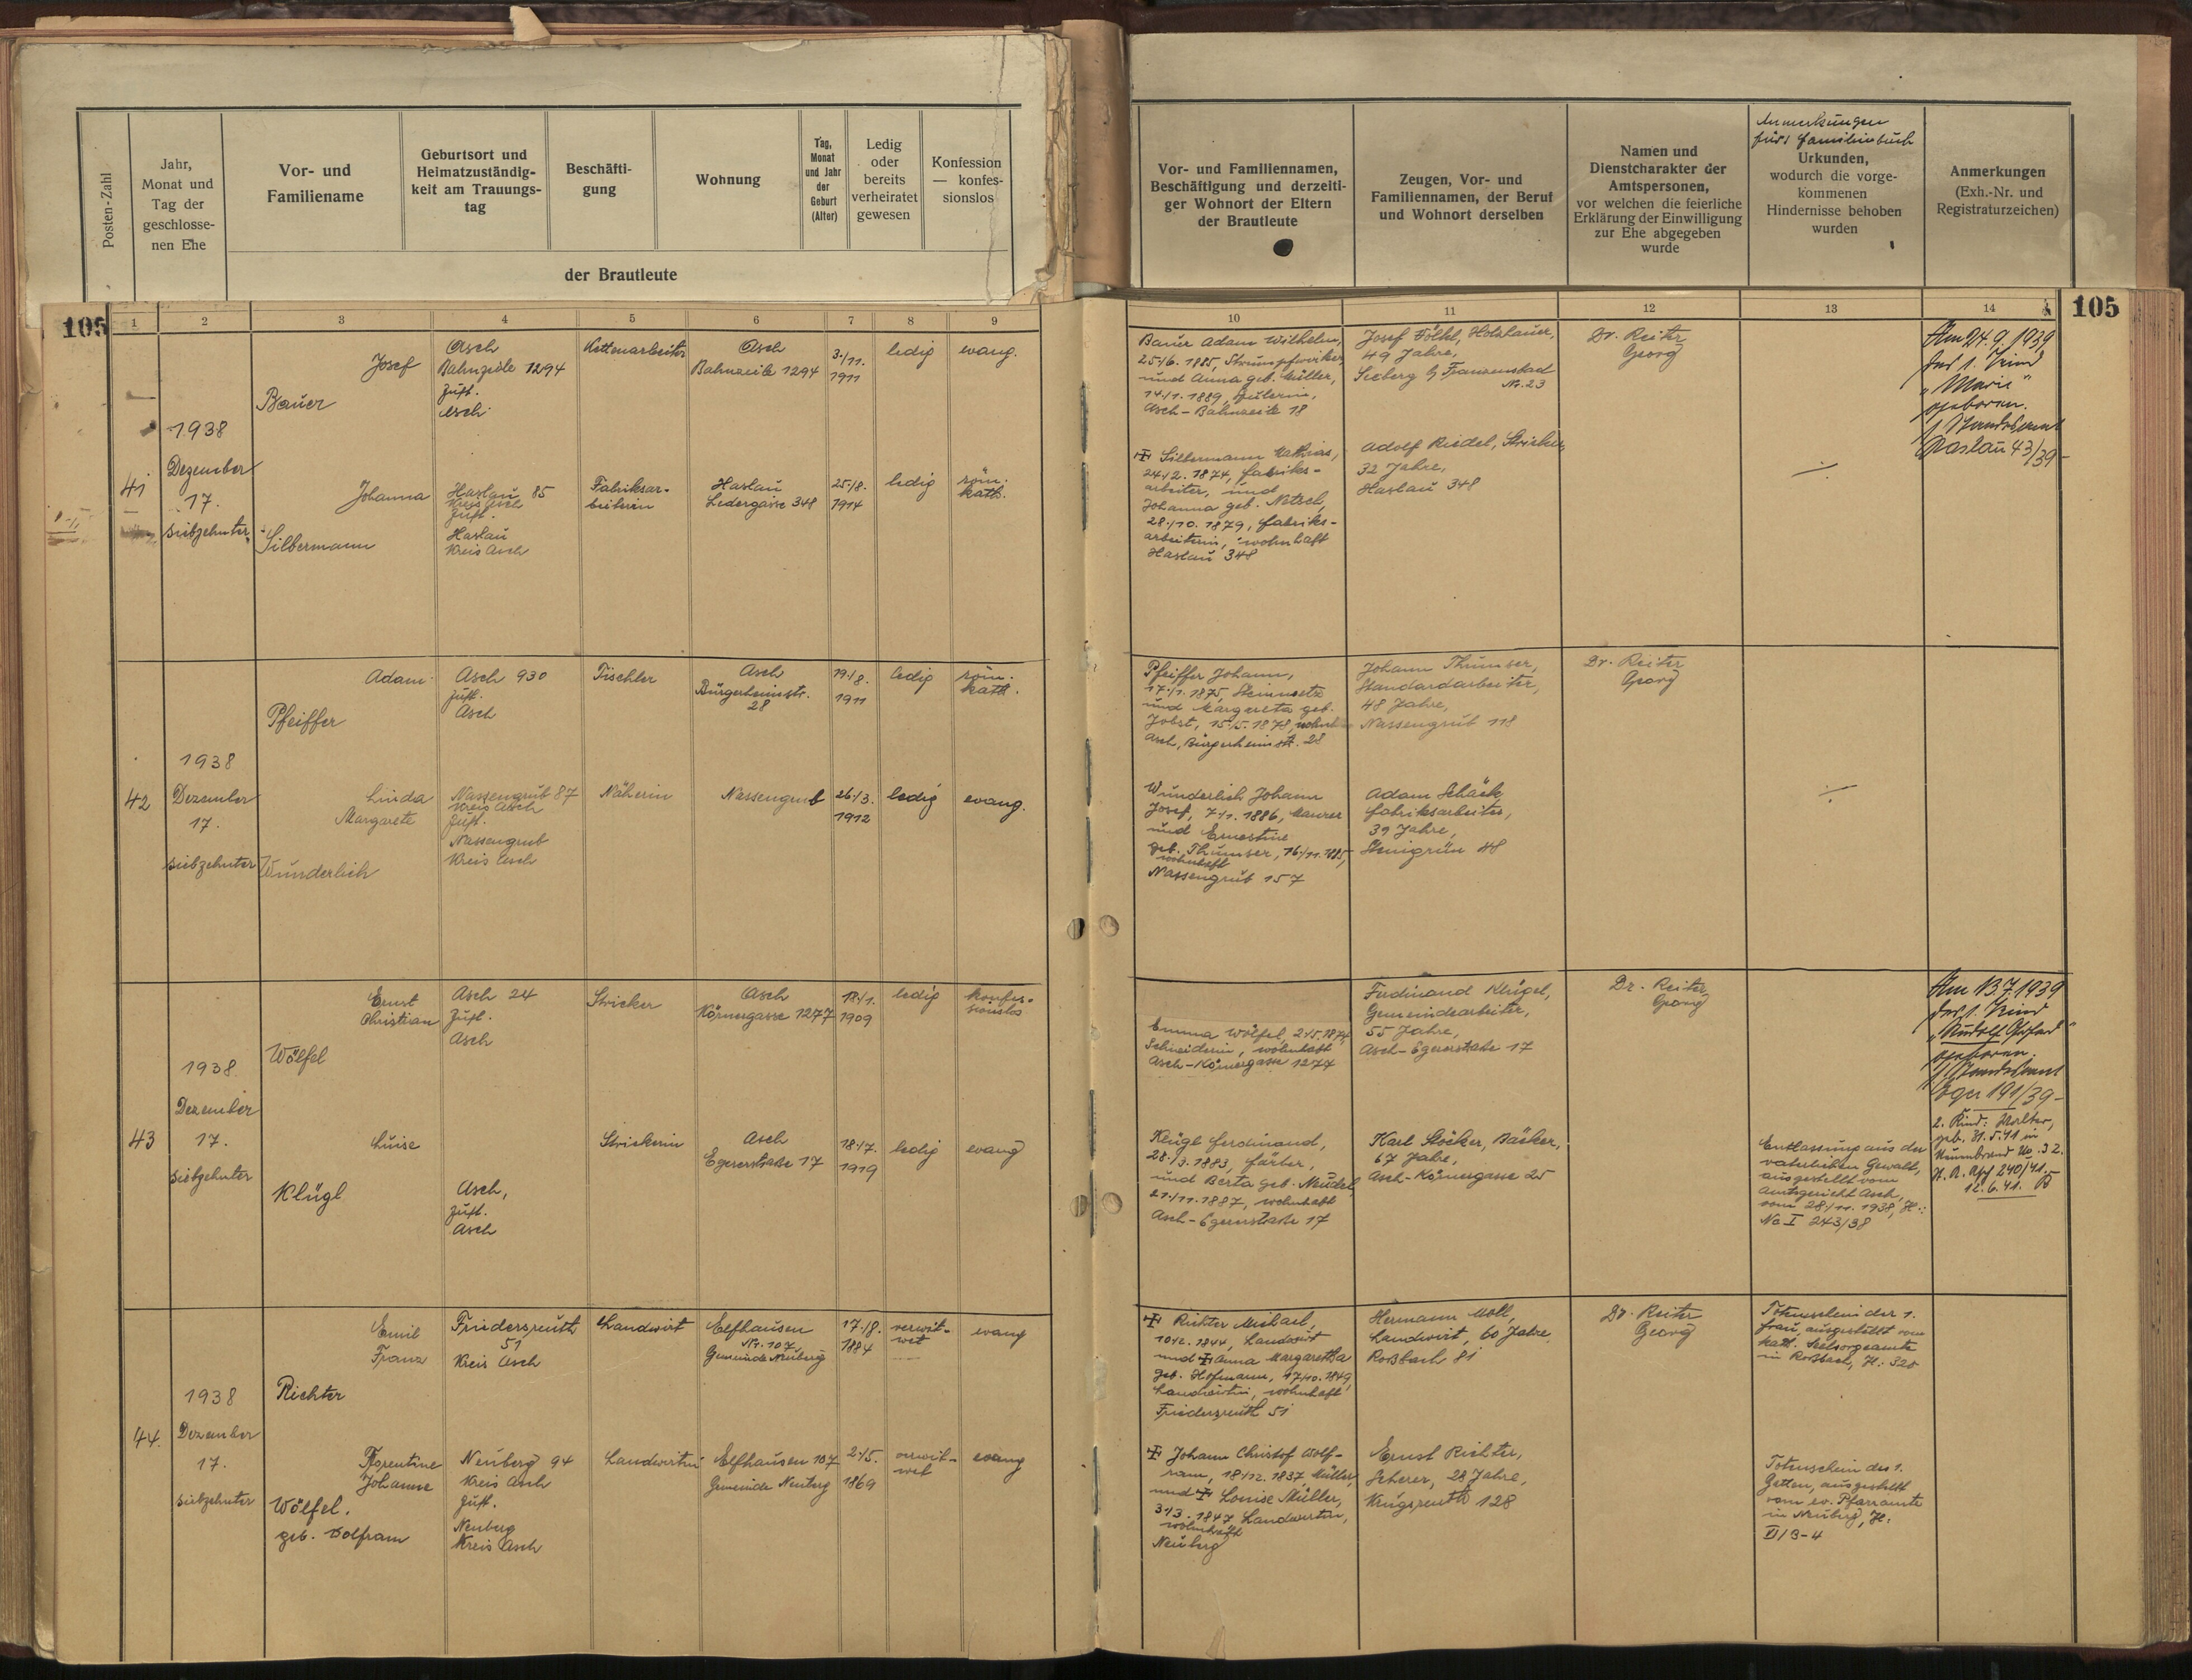 Posten-Zahl
Jahr,
Monat und
Tag der
geschlosse-
nen Ehe
Vor- und
Familiename
Geburtsort und
Heimatzuständig-
keit am Trauungs-
tag
Beschäfti-
gung
Wohnung
Tag,
Monat
und Jahr
der
Geburt
(Alter)
Ledig
oder
bereits
verheiratet
gewesen
Konfession
— konfes-
sionslos
der Brautleute
Vor- und Familiennamen,
Beschäftigung und derzeiti-
ger Wohnort der Eltern
der Brautleute
Zeugen, Vor- und
Familiennamen, der Beruf
und Wohnort derselben
Namen und
Dienstcharakter der
Amtspersonen,
vor welchen die feierliche
Erklärung der Einwilligung
zur Ehe abgegeben
wurde
Anmerkungen
fürs Familienbuch
Urkunden,
wodurch die vorge-
kommenen
Hindernisse behoben
wurden
Anmerkungen
(Exh.-Nr. und
Registraturzeichen)
105
1 2 3 4 5 6 7 8 9
10 11 12 13 14
105
41
1938
Dezember
17.
siebzehnter
Josef
Bauer
Asch
Bahnzeile 1294
Zust.
Asch
Kettenarbeiter
Asch
Bahnzeile 1294
3./11.
1911
ledig
evang.
Johanna
Silbermann
Haslau 85
Kreis Asch
Zust.
Haslau
Kreis Asch
Fabriksar-
beiterin
Haslau
Ledergasse 348
25./8.
1914
ledig
röm.
kath.
Bauer Adam Wilhelm,
25./6. 1885, Strumpfwirker
und Anna geb. Müller,
14./1. 1889,
Asch - Bahnzeile 18
Silbermann Mathias,
24./2. 1874, Fabriks-
arbeiter, und
Johanna geb. Netsch,
28./10. 1879, Fabriks-
arbeiterin, wohnhaft
Haslau 348
Josef Fölkl, Holzhauer,
49 Jahre,
Seeberg b/ Franzensbad
Nr. 23
Adolf Riedel, Stricker,
32 Jahre,
Haslau 348
Dr. Reiter
Georg
Am 24.9.1939
das 1. Kind
„Marie"
geboren.
Standesamt
Haslau 43/39-
42
1938
Dezember
17.
siebzehnter
Adam
Pfeiffer
Asch 930
Zust.
Asch
Tischler
Asch
Bürgerheimstr.
28
19./8.
1911
ledig
röm.
kath.
Linda
Margarete
Wunderlich
Nassengrub 87
Kreis Asch
Zust.
Nassengrub
Kreis Asch
Näherin
Nassengrub
26./3.
1912
ledig
evang.
Pfeiffer Johann,
17./1. 1875 Steinmetz
und Margareta geb.
Jobst, 15./5. 1878, wohnh.
Asch, Bürgerheimstr. 28
Wunderlich Johann
Josef, 7./1. 1886, Maurer
und Ernestine
geb. Thumser, 16./11. 1885,
wohnhaft
Nassengrub 157
Johann Thumser,
Standardarbeiter,
48 Jahre,
Nassengrub 118
Adam Schäck,
Fabriksarbeiter,
31 Jahre,
Steingrün 48
Dr. Reiter
Georg
43
1938
Dezember
17.
siebzehnter
Ernst
Christian
Wölfel
Asch 24
Zust.
Asch
Stricker
Asch
Körnergasse 1277
18./1.
1909
ledig
konfes-
sionslos
Luise
Klügl
Asch,
Zust.
Asch
Strickerin
Asch
Egererstraße 17
18./7.
1919
ledig
evang
Emma Wölfel, 21/5. 1874
Schneiderin, wohnhaft
Asch - Körnergasse 1277
Klügl Ferdinand,
28./3. 1883, Färber,
und Berta geb. Neudel
21./11. 1887, wohnhaft
Asch - Egererstraße 17
Ferdinand Klügel,
Gemeindearbeiter,
55 Jahre,
Asch - Egererstraße 17
Karl Stöcker, Bäcker,
67 Jahre,
Asch - Körnergasse 25
Dr. Reiter
Georg
Entlassung aus der
väterlichen Gewalt,
ausgestellt vom
Amtsgericht Asch,
vom 28./11. 1938, Zl.:
No I 243/38
Am 13.7.1939
das 1. Kind
„Rudolf
geboren.
Standesamt
Eger 191/39-
2. Kind: Walter,
geb. 31.5.41 in
St. A. Asch 240/41.
12.6.41.
44.
1938
Dezember
17.
siebzehnter
Emil
Franz
Richter
Friedersreuth
51
Kreis Asch
Landwirt
Elfhausen
Nr. 107
Gemeinde Neuberg
17./8.
1884
verwit-
wet
evang
Florentine
Johanne
Wölfel.
geb. Wolfram
Neuberg 94
Kreis Asch
Zust.
Neuberg
Kreis Asch
Landwirtin
Elfhausen 107
Gemeinde Neuberg
2./5.
1869
verwit-
wet
evang
Richter Michael,
10/2. 1844, Landwirt
und Anna Margaretha
geb. Hofmann, 17/10. 1849,
Landwirtin, wohnhaft
Friedersreuth 51
Johann Christof Wolf-
ram, 18./12. 1837, Müller
und Louise Müller,
31/3. 1847 Landwirtin,
wohnhaft
Neuberg
Hermann Moll,
Landwirt, 60 Jahre,
Roßbach 81
Ernst Richter,
Scherer, 28 Jahre,
Krugsreuth 128
Dr. Reiter
Georg
Totenschein der 1.
Frau, ausgestellt vom
kath. Seelsorgeamte
in Roßbach, Zl: 320
Totenschein des 1.
Gatten, ausgestellt
vom ev. Pfarramte
in Neuberg, Zl: